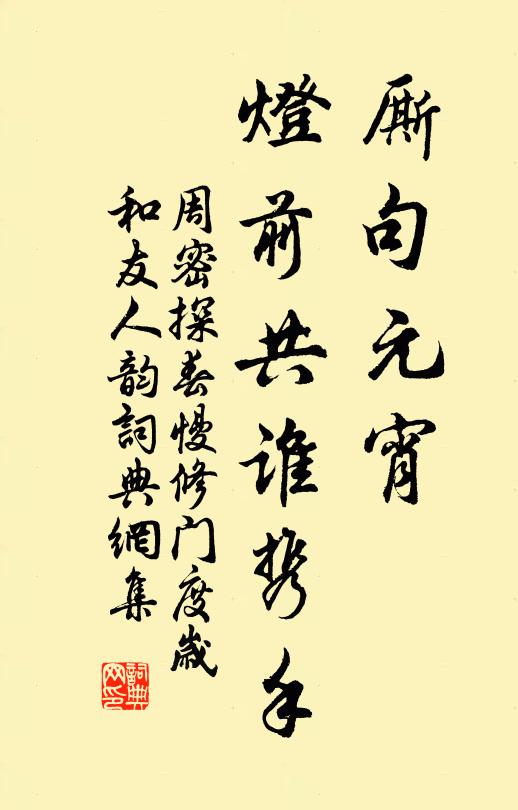 廝句元宵
燈前共誰携手
周密探春慢修门度歲
和友人韵詞典網集
詞典
网印